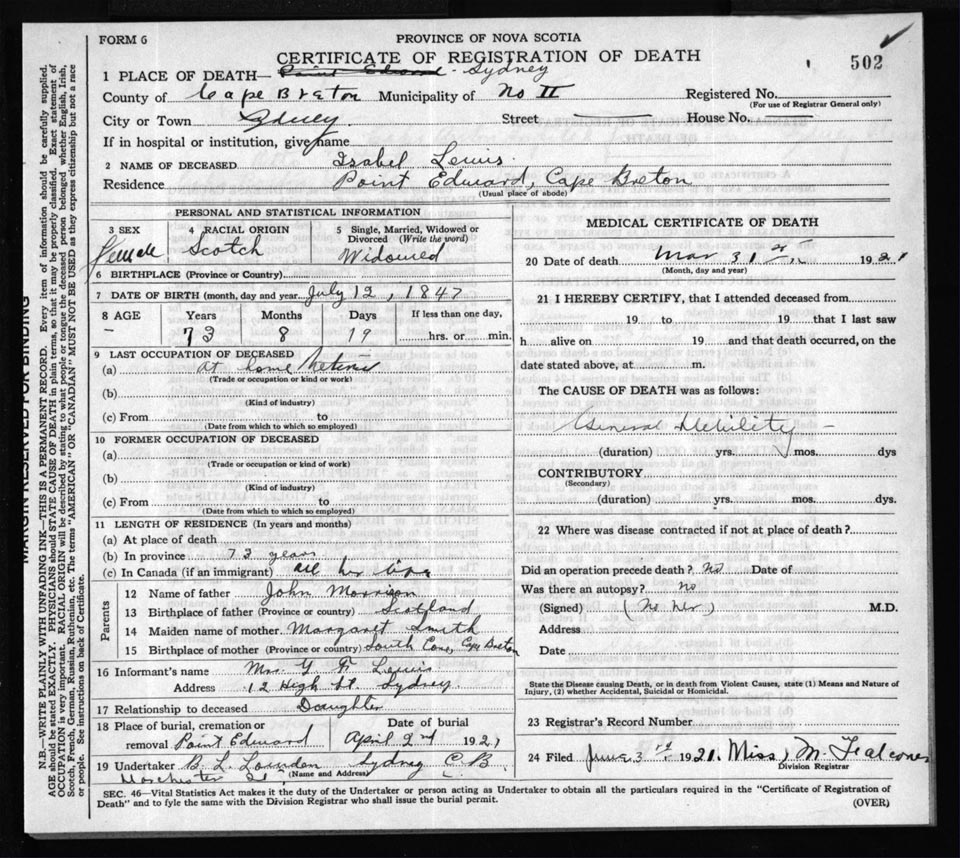 FORM 6
PROVINCE OF NOVA SCOTIA
CERTIFICATE OF REGISTRATION OF DEATH
502
1 PLACE OF DEATH— Point Edward - Sydney
County of Cape Breton Municipality of No II Registered No.
(For use of Registrar General only)
City or Town Sydney Street House No.
If in hospital or institution, give name
2 NAME OF DECEASED Isabel Lewis
Residence Point Edward, Cape Breton
(Usual place of abode)
PERSONAL AND STATISTICAL INFORMATION
3 SEX Female
4 RACIAL ORIGIN Scotch
5 Single, Married, Widowed or Divorced (Write the word) Widowed
6 BIRTHPLACE (Province or Country)
7 DATE OF BIRTH (month, day and year July 12, 1847
8 AGE Years Months Days If less than one day,
– 73 8 19 hrs. or min.
9 LAST OCCUPATION OF DECEASED
(a) At home Retired
(Trade or occupation or kind or work)
(b)
(Kind of industry)
(c) From to
(Date from which to which so employed)
10 FORMER OCCUPATION OF DECEASED
(a)
(Trade or occupation or kind of work)
(b)
(Kind of industry)
(c) From to
(Date from which to which so employed)
11 LENGTH OF RESIDENCE (In years and months)
(a) At place of death
(b) In province 73 years
(c) In Canada (if an immigrant) all her life
Parents
12 Name of father John Morrison
13 Birthplace of father (Province or country) Scotland
14 Maiden name of mother Margaret Smith
15 Birthplace of mother (Province or country) South Cove, Cape Breton
16 Informant's name Mrs. Lewis
Address 12 High St. Sydney.
17 Relationship to deceased Daughter
18 Place of burial, cremation or Date of burial
removal Point Edward April 2nd 1921
19 Undertaker B. L. Sydney C.B.
(Name and Address)
MEDICAL CERTIFICATE OF DEATH
20 Date of death Mar 31st 1921
(Month, day and year)
21 I HEREBY CERTIFY, that I attended deceased from
19 to 19 that I last saw
h alive on 19 and that death occurred, on the
date stated above, at m.
The CAUSE OF DEATH was as follows:
General Debility –
(duration) yrs. mos. dys
CONTRIBUTORY
(Secondary)
(duration) yrs. mos. dys.
22 Where was disease contracted if not at place of death?
Did an operation precede death? No Date of
Was there an autopsy? No
(Signed) (No Dr.) M.D.
Address
Date
State the Disease causing Death, or in death from Violent Causes, state (1) Means and Nature of
Injury, (2) whether Accidental, Suicidal or Homicidal.
23 Registrar's Record Number
24 Filed June 3rd 1921. Miss M.
Division Registrar
SEC. 46—Vital Statistics Act makes it the duty of the Undertaker or person acting as Undertaker to obtain all the particulars required in the "Certificate of Registration of
Death" and to fyle the same with the Division Registrar who shall issue the burial permit.
(OVER)
MARGIN RESERVED FOR BINDING
N.B.—WRITE PLAINLY WITH UNFADING INK—THIS IS A PERMANENT RECORD. Every item of information should be carefully supplied.
AGE should be stated EXACTLY. PHYSICIANS should STATE CAUSE OF DEATH in plain terms, so that it may be properly classified. Exact statement of
OCCUPATION is very important. RACIAL ORIGIN will be described by stating to what people or tongue the deceased person belonged, whether English, Irish,
Scotch, French, German, Russian, Ruthenian, etc. The terms "AMERICAN" OR "CANADIAN" MUST NOT BE USED as they express citizenship but not a race
or people. See instructions on back of Certificate.